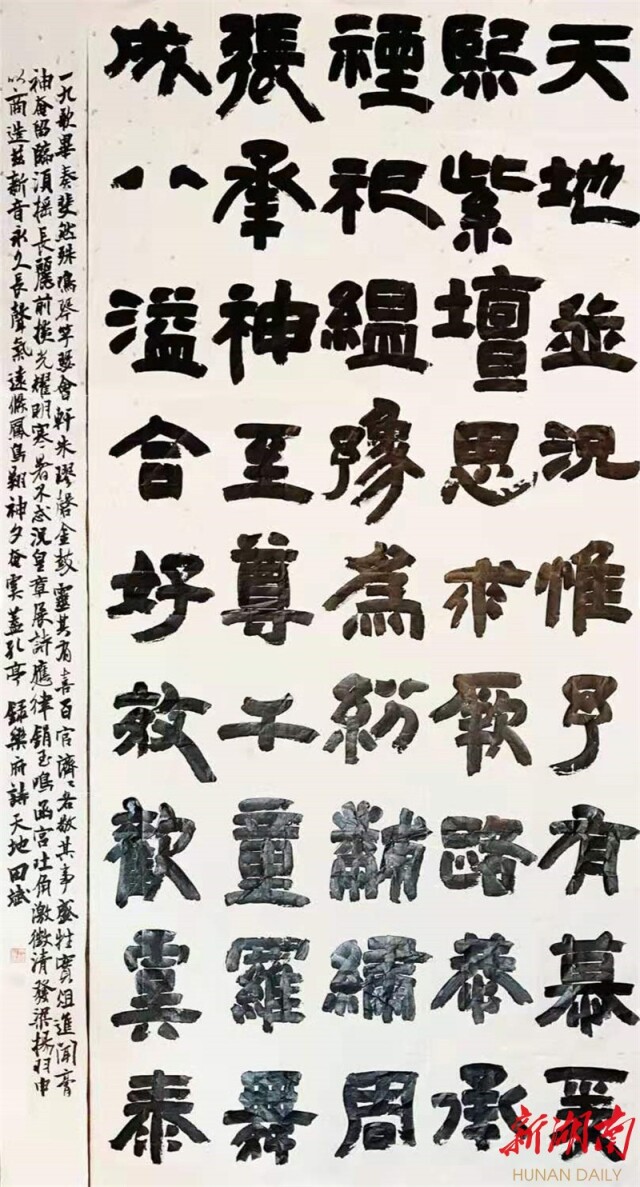 天地並況惟予有慕爰
熙紫壇思求厥路恭承
禋祀縕豫為紛黼繡周
張承神至尊千童羅舞
成八溢合好效歡虞泰
一九歌畢奏斐然殊鳴琴竽瑟會軒朱璆磬金鼓靈其有喜百官濟〻各敬其事盛牲實俎進聞膏
神奄留臨須搖長麗前掞光耀明寒暑不忒況皇章展詩應律鋗玉鳴函宮吐角激徵清發梁揚羽申
以商造茲新音永久長聲氣遠條鳳鳥翔神夕奄虞蓋孔享 錄樂府詩天地 田斌
新湖南
HUNAN DAILY